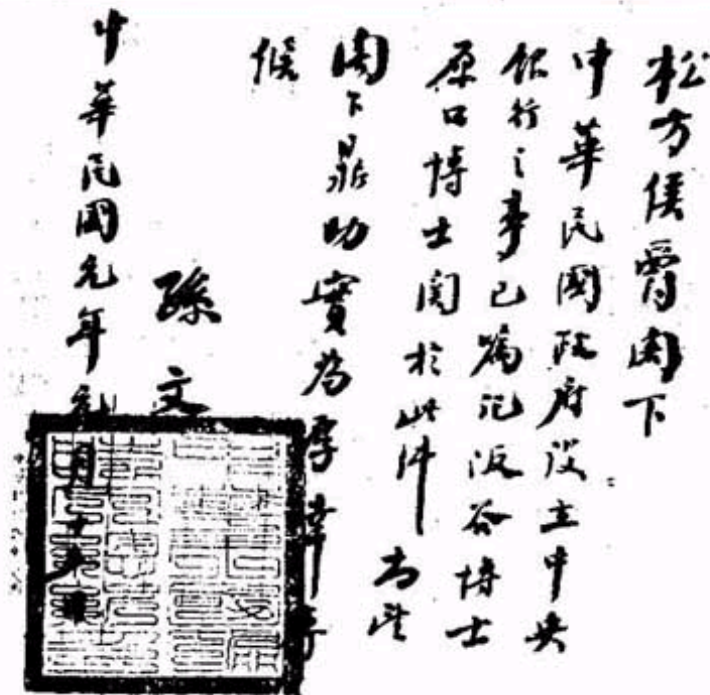 松方侯爵閣下
中華民國政府設立中央
銀行之事已囑託阪谷博士
原口博士関於此件尚望
閣下鼎助實為厚幸專
候
孫文
中華民國元年元月十